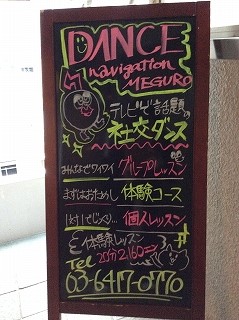 DANCE
navigation
MEGURO
テレビで話題の
社交ダンス
みんなでワイワイ グループレッスン
まずはおためし 体験コース
個人レッスン
体験レッスン
25分 2,160円
Tel
03-6417-0770